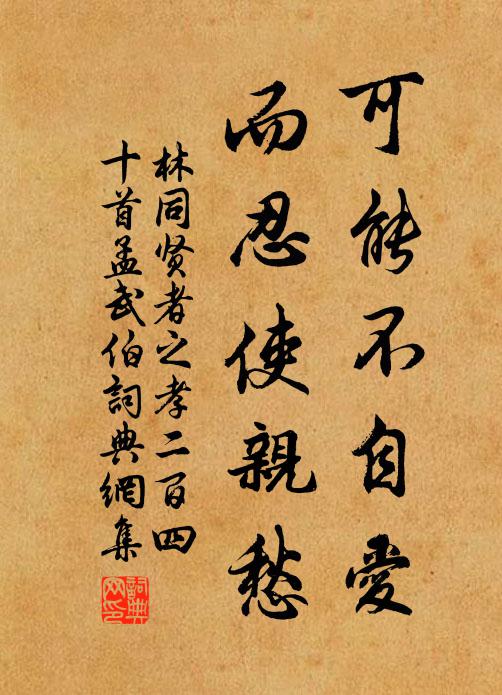 可能不自愛
而忍使親愁
林同贤者之孝二百四
十首孟武伯詞典網集
詞典网印